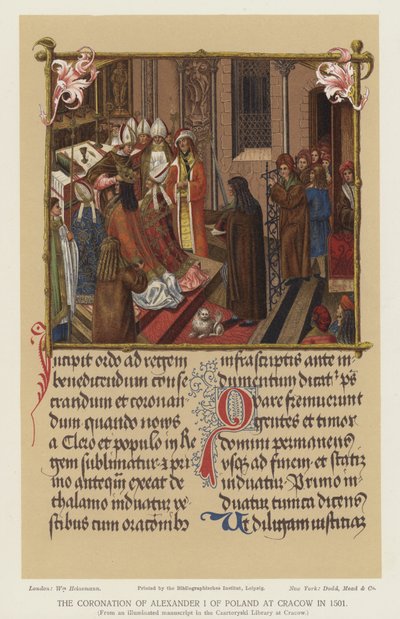 Incipit ordo ad regem
benedicendum conse
crandum et coronan
dum quando novus
a Clero et populo in Re
gem sublimatur. et pri
mo anteqm̄ exeat de
thalamo induatur ve
stibus cum
infrascriptis ante in-
dumentum dicatr ps
Quare fremuerunt
gentes et timor
domini permanens
usq ad finem. et
induatur. Primo in
duatur tunica dicens
Ut diligam
London: Wm Heinemann.
Printed by the Bibliographisches Institut, Leipzig.
New York: Dodd, Mead & Co.
THE CORONATION OF ALEXANDER I OF POLAND AT CRACOW IN 1501.
(From an illuminated manuscript in the Czartoryski Library at Cracow.)